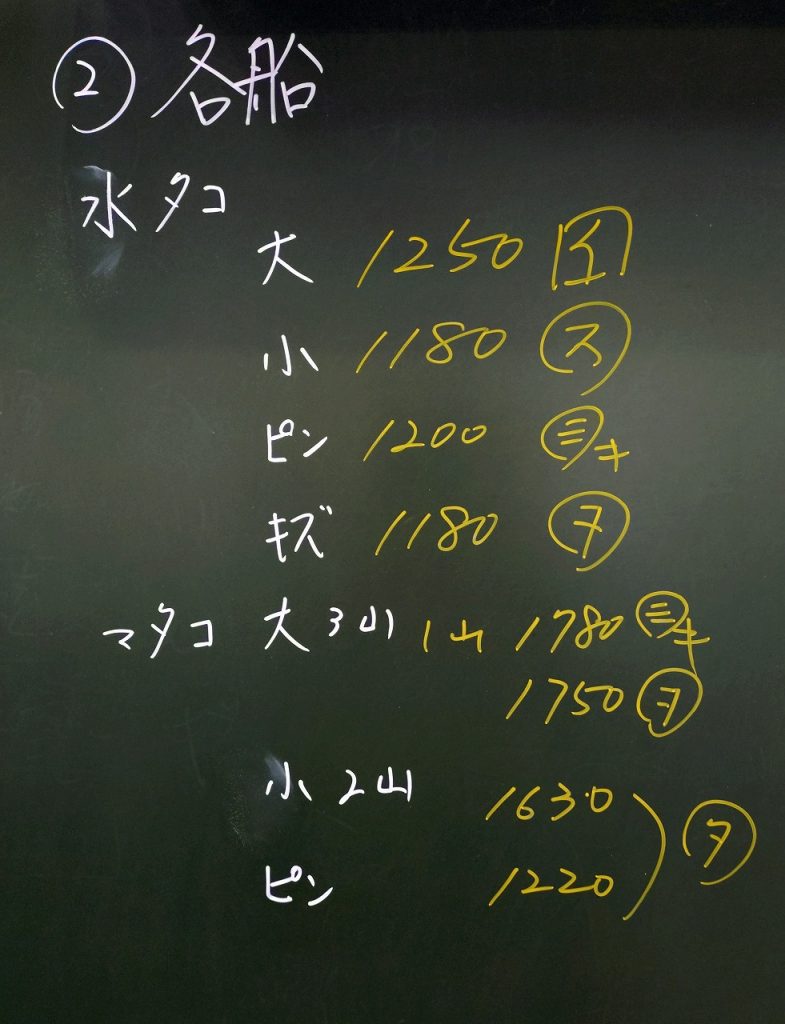 ② 各船
水タコ
大 1250 イ
小 1180 ス
ピン 1200 ミキ
キズ 1180 ヲ
マタコ 大 3山 1山 1780 ミキ
1750 ヲ
小 2山 1630
ピン 1220 タ